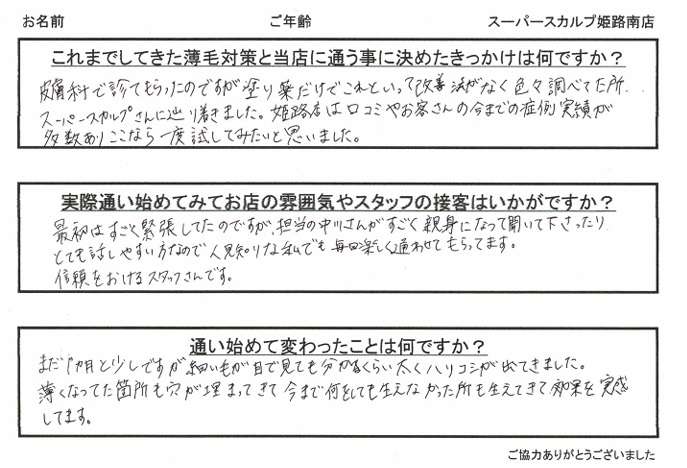 お名前 ご年齢 スーパースカルプ姫路南店
これまでしてきた薄毛対策と当店に通う事に決めたきっかけは何ですか？
皮膚科で診てもらったのですが塗り薬だけでこれといって改善法がなく色々調べてた所
スーパースカルプさんに辿り着きました。姫路店は口コミやお客さんの今までの症例実績が
多数ありここなら一度試してみたいと思いました。
実際通い始めてみてお店の雰囲気やスタッフの接客はいかがですか？
最初はすごく緊張してたのですが、担当の中川さんがすごく親身になって聞いて下さったり
とても話しやすい方なので人見知りな私でも毎回楽しく通わせてもらってます。
信頼をおけるスタッフさんです。
通い始めて変わったことは何ですか？
まだ1ヵ月と少しですが細い毛が目で見ても分かるくらい太くハリコシが出てきました。
薄くなってた箇所も穴が埋まってきて今まで何をしても生えなかった所も生えてきて効果を実感
してます。
ご協力ありがとうございました